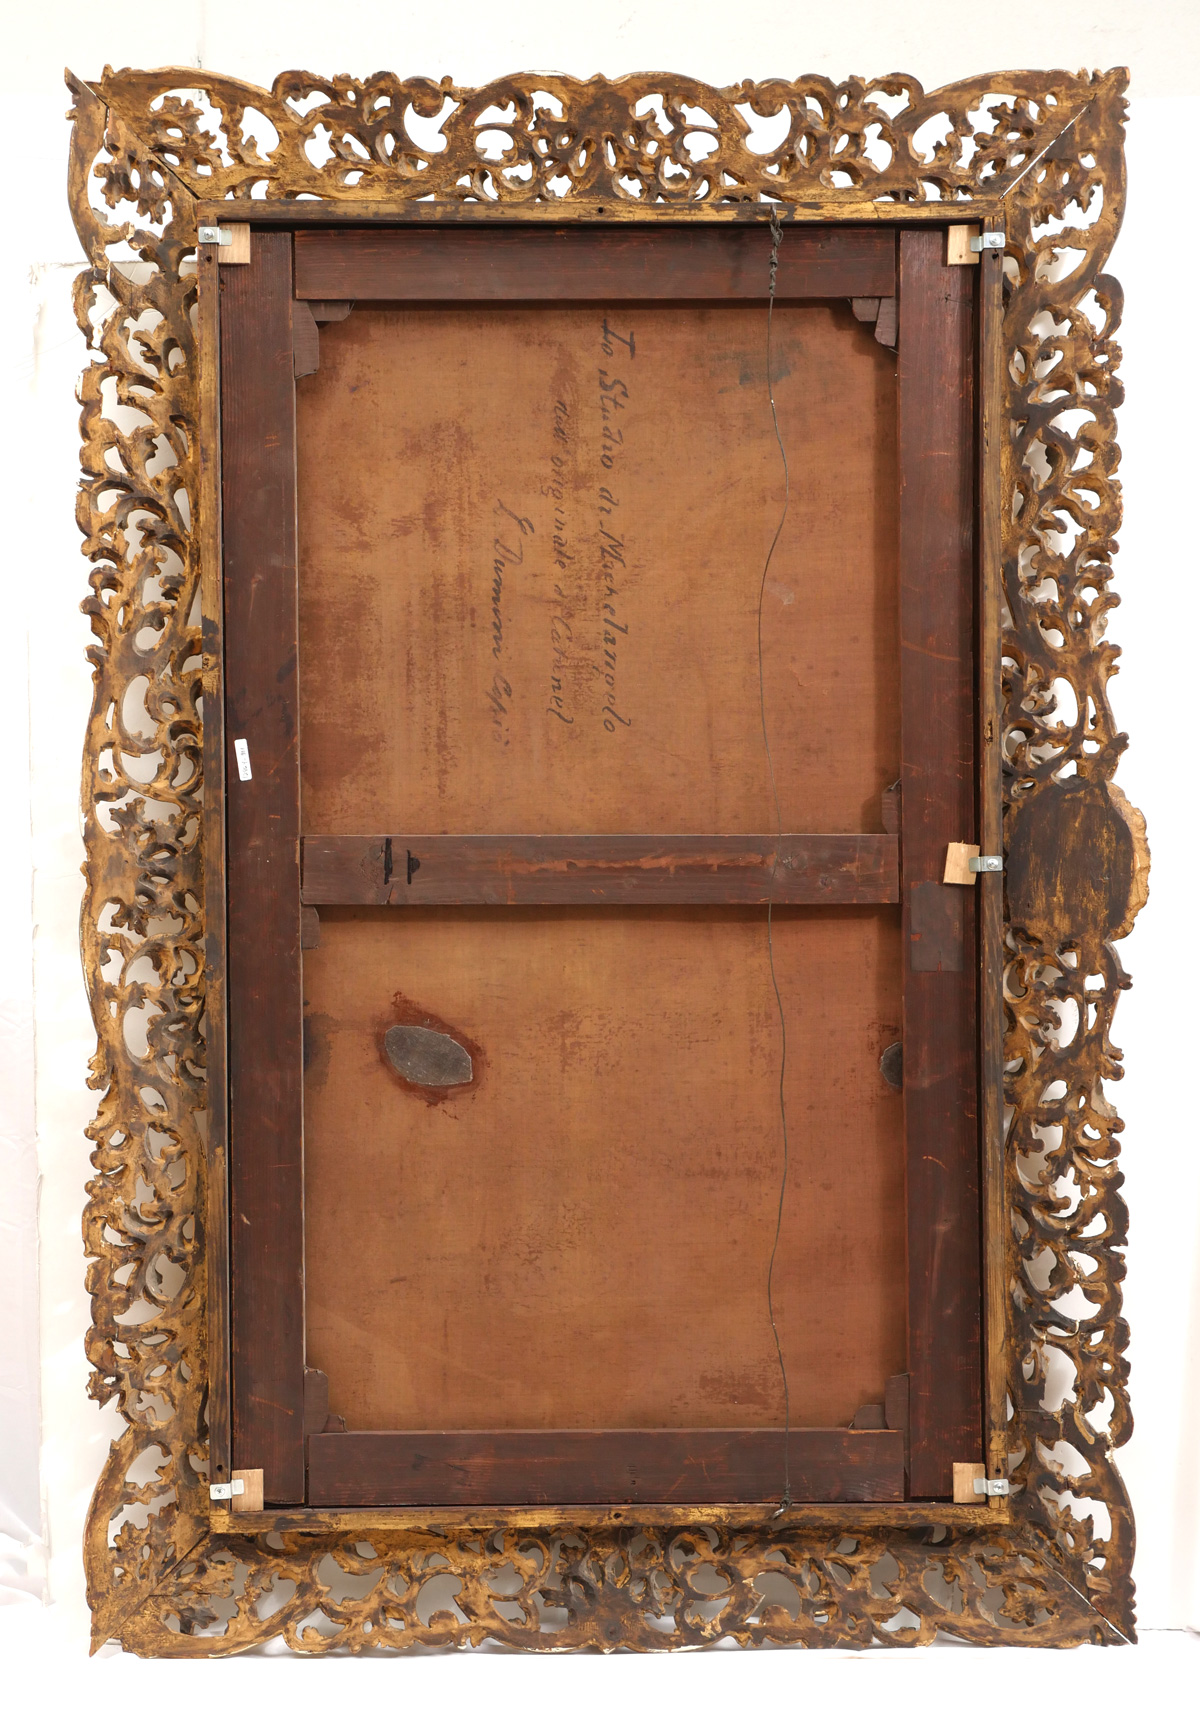 Lo Studio di Michelangelo
dall originale di Cabanel
L. Dumini Copiò